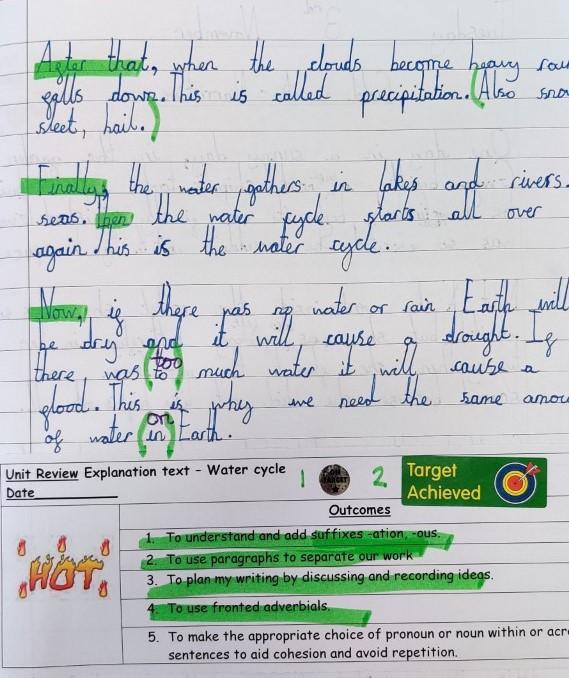 After that, when the clouds become heavy
falls down. This is called precipitation. (Also
sleet, hail.)
Finally, the water gathers in lakes and rivers.
seas. Then the water cycle starts all over
again. This is the water cycle.
Now, if there was no water or rain Earth will
be dry and it will cause a drought. If
there was (to) too much water it will cause a
flood. This is why we need the same
of water (in) on Earth.
Unit Review Explanation text - Water cycle
Date
1
ON TARGET
2.
Target
Achieved
HOT
Outcomes
1. To understand and add suffixes -ation, -ous.
2. To use paragraphs to separate our work
3. To plan my writing by discussing and recording ideas.
4. To use fronted adverbials.
5. To make the appropriate choice of pronoun or noun within or
sentences to aid cohesion and avoid repetition.